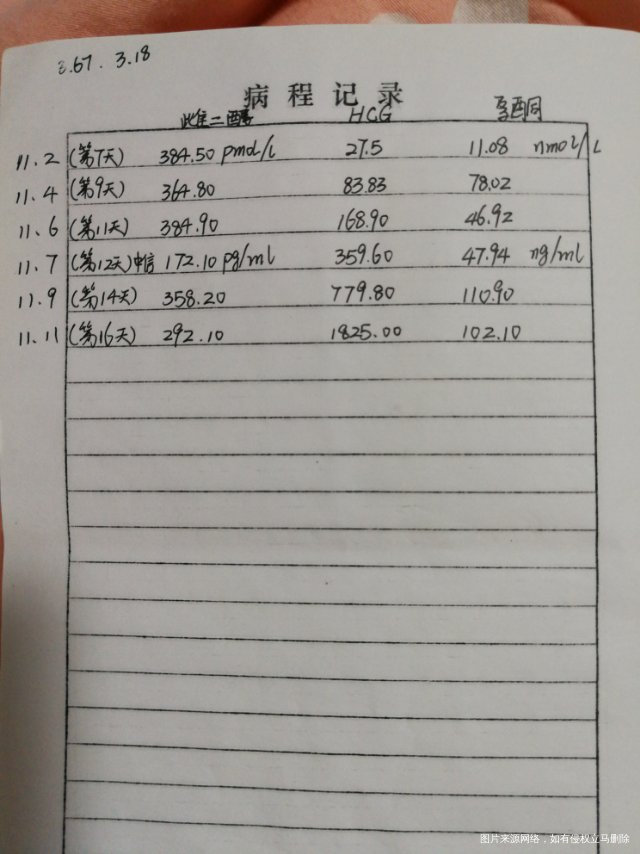 3.67. 3.18
病程记录
雌二醇 HCG 孕酮
11.2 (第7天) 384.50 pmol/L 27.5 11.08 nmol/L
11.4 (第9天) 364.80 83.83 78.02
11.6 (第11天) 384.90 168.90 46.92
11.7 (第12天)中信 172.10 pg/ml 359.60 47.94 ng/ml
11.9 (第14天) 358.20 779.80 110.90
11.11 (第16天) 292.10 1825.00 102.10
图片来源网络，如有侵权立马删除